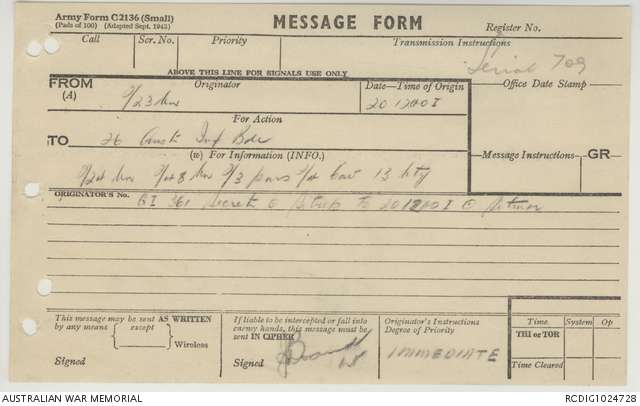 Army Form C2136 (Small)
(Pads of 100) (Adapted Sept. 1942)
MESSAGE FORM
Register No.
Call Ser. No. Priority Transmission Instructions
Serial 709
ABOVE THIS LINE FOR SIGNALS USE ONLY
FROM Originator Date—Time of Origin Office Date Stamp
(A) 2/23 Bn 201200I
For Action
TO 26 Aust Inf Bde
(w) For Information (INFO.) Message Instructions GR
2/24 Bn 2/48 Bn 2/3 2/4 13 bty
ORIGINATOR'S No. 361 Secret to 201200I
This message may be sent AS WRITTEN
by any means except
Wireless
Signed
If liable to be intercepted or fall into
enemy hands, this message must be
sent IN CIPHER
Signed
Originator's Instructions
Degree of Priority
IMMEDIATE
Time System Op
THI or TOR
Time Cleared
AUSTRALIAN WAR MEMORIAL RCDIG1024728